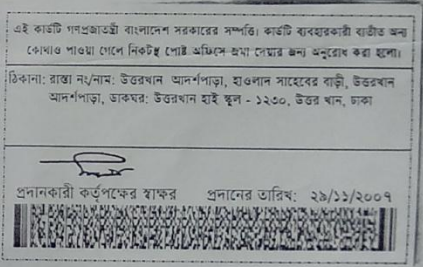 এই কার্ডটি গণপ্রজাতন্ত্রী বাংলাদেশ সরকারের সম্পত্তি। কার্ডটি ব্যবহারকারী ব্যতীত অন্য
কোথাও পাওয়া গেলে নিকটস্থ পোষ্ট অফিসে জমা দেয়ার জন্য অনুরোধ করা হলো।
ঠিকানা: রাস্তা নং/নাম: উত্তরখান আদর্শপাড়া, হাওলাদ সাহেবের বাড়ী, উত্তরখান
আদর্শপাড়া, ডাকঘর: উত্তরখান হাই স্কুল - ১২৩০, উত্তর খান, ঢাকা
প্রদানকারী কর্তৃপক্ষের স্বাক্ষর প্রদানের তারিখ: ২৯/১১/২০০৭